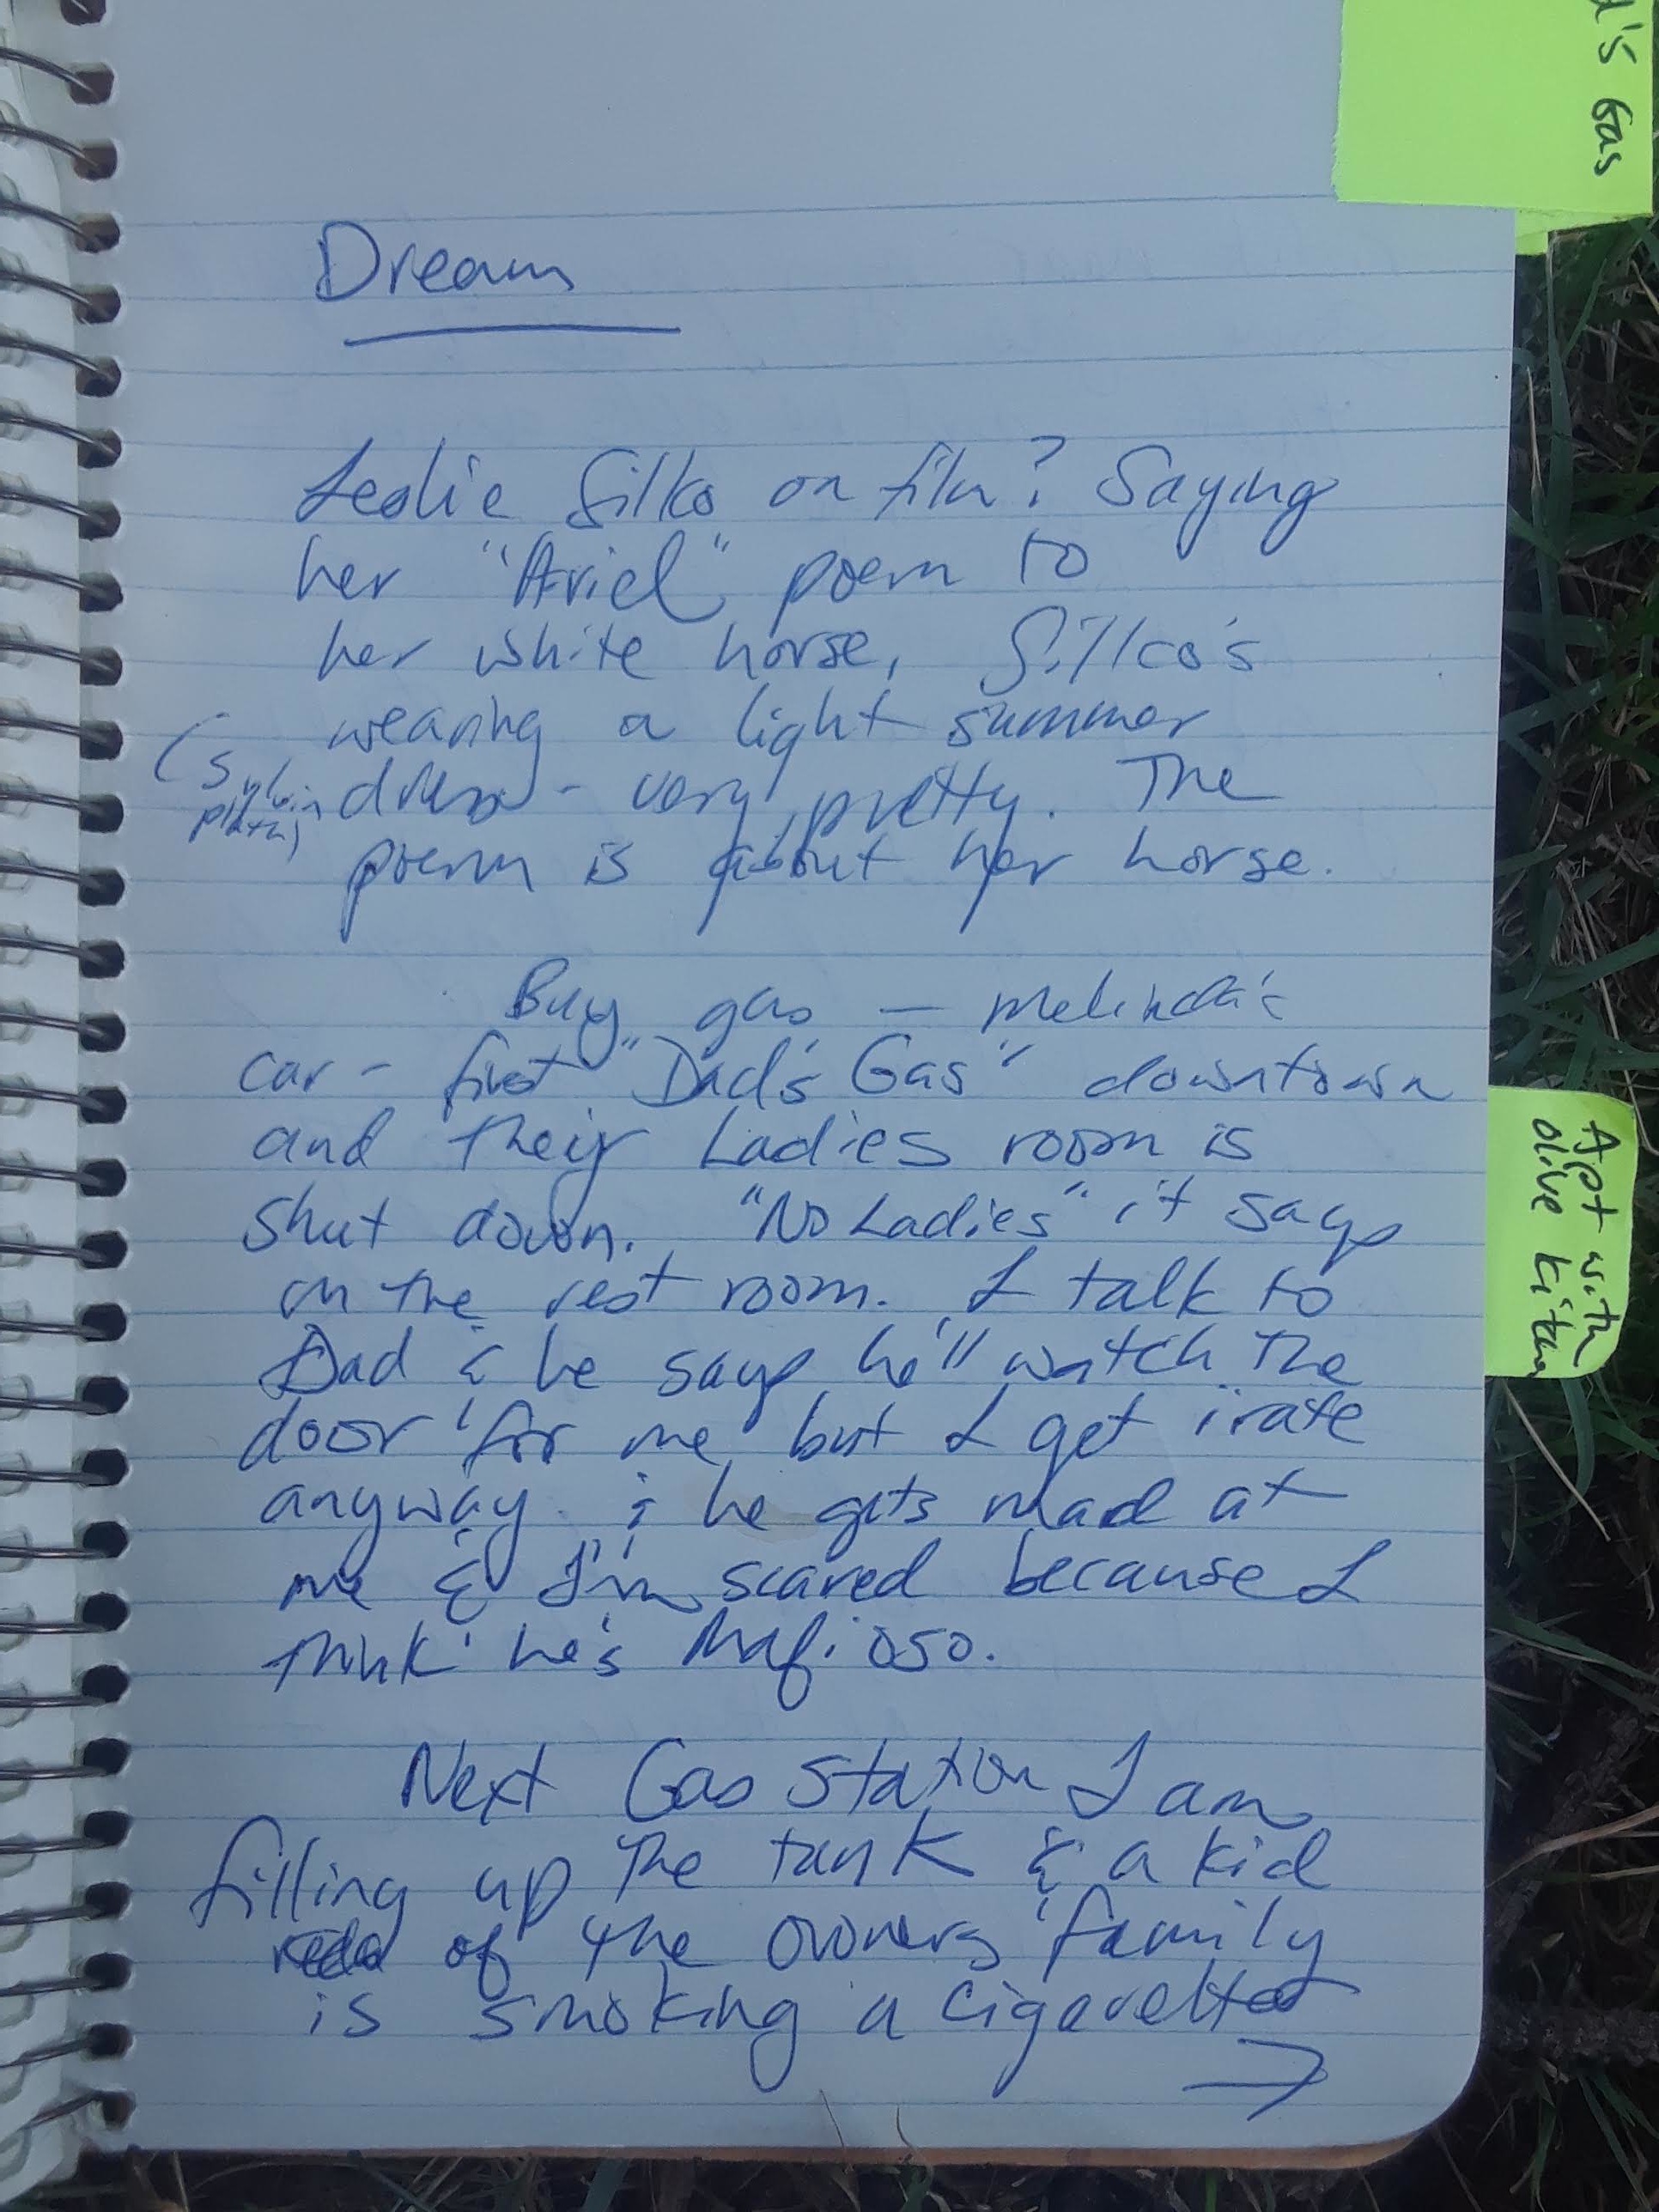 d's Gas
Dream
Leslie Silko on film? Saying
her "Ariel" poem to
her white horse, Silko's
wearing a light summer
(Sylvia
Plath)
dress - very pretty. The
poem is about her horse.
Buy gas — Melinda's
car - first "Dad's Gas" downtown
and their Ladies room is
shut down. "No Ladies" it says
on the rest room. I talk to
Dad & he says he'll watch the
door for me but I get irate
anyway & he gets mad at
me & I'm scared because I
think he's Mafioso.
Next Gas Station I am
filling up the tank & a kid
of the owners family
is smoking a cigarette
→
Apt with
olive kitchen